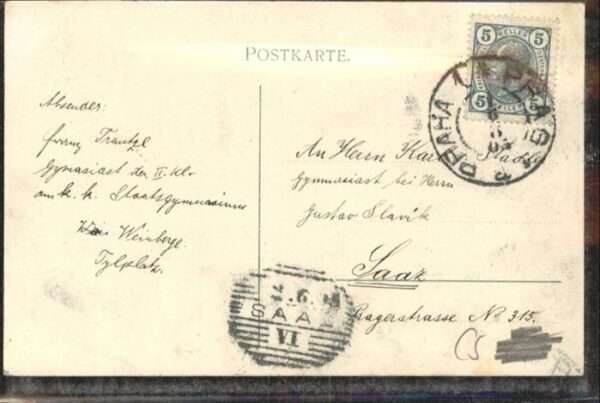 POSTKARTE.
5 HELLER 5
5 HELLER 5
PRAHA 1 PRAG
6
Absender:
Franz
Gymnasiast der II. Kl.
am k. k. Staatsgymnasium
Weinberge
Tylplatz.
An Herrn Karl Stadl
Gymnasiast bei Herrn
Gustav Slavik
Saaz
Pragerstrasse No 315.
6.
SAAZ
VI
CS